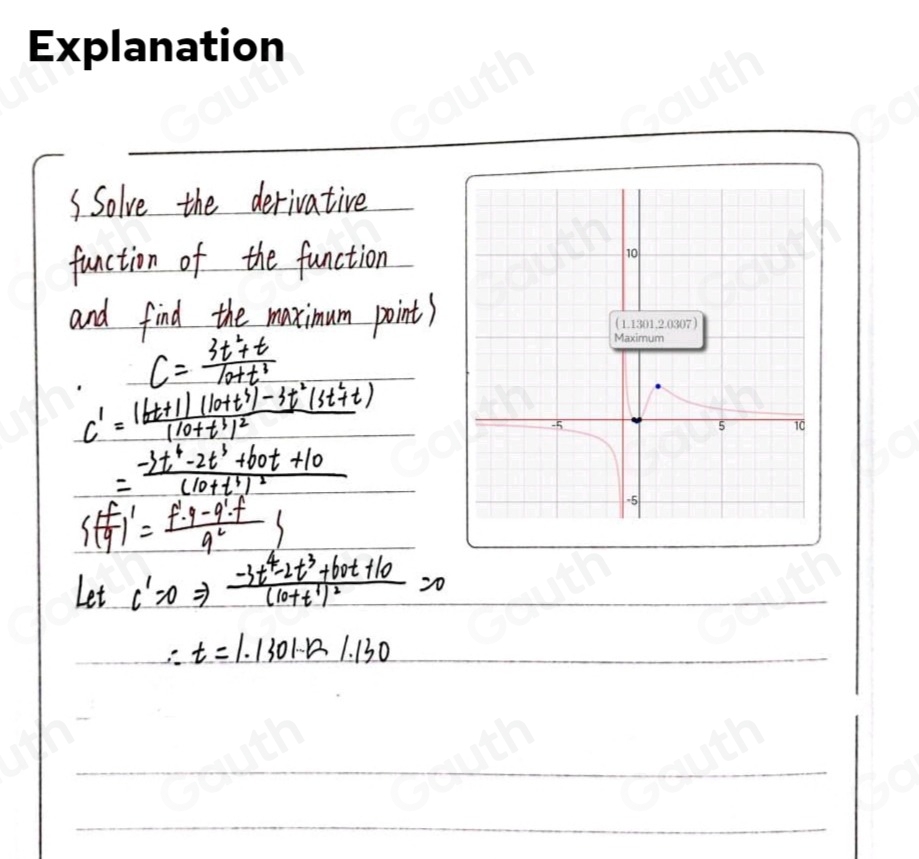 Explanation
{ Solve the derivative
function of the function
and find the maximum point}
C = (3t²+t)/(10+t³)
C' = ((6t+1)(10+t³)-3t²(3t²+t))/(10+t³)²
= (-3t⁴-2t³+60t+10)/(10+t³)²
{(f/g)' = (f'·g-g'·f)/g² }
Let c'=0 ⇒ (-3t⁴-2t³+60t+10)/(10+t³)² =0
∴ t=1.1301..≈ 1.130
10
(1.1301,2.0307)
Maximum
-5
5
10
-5
Gauth